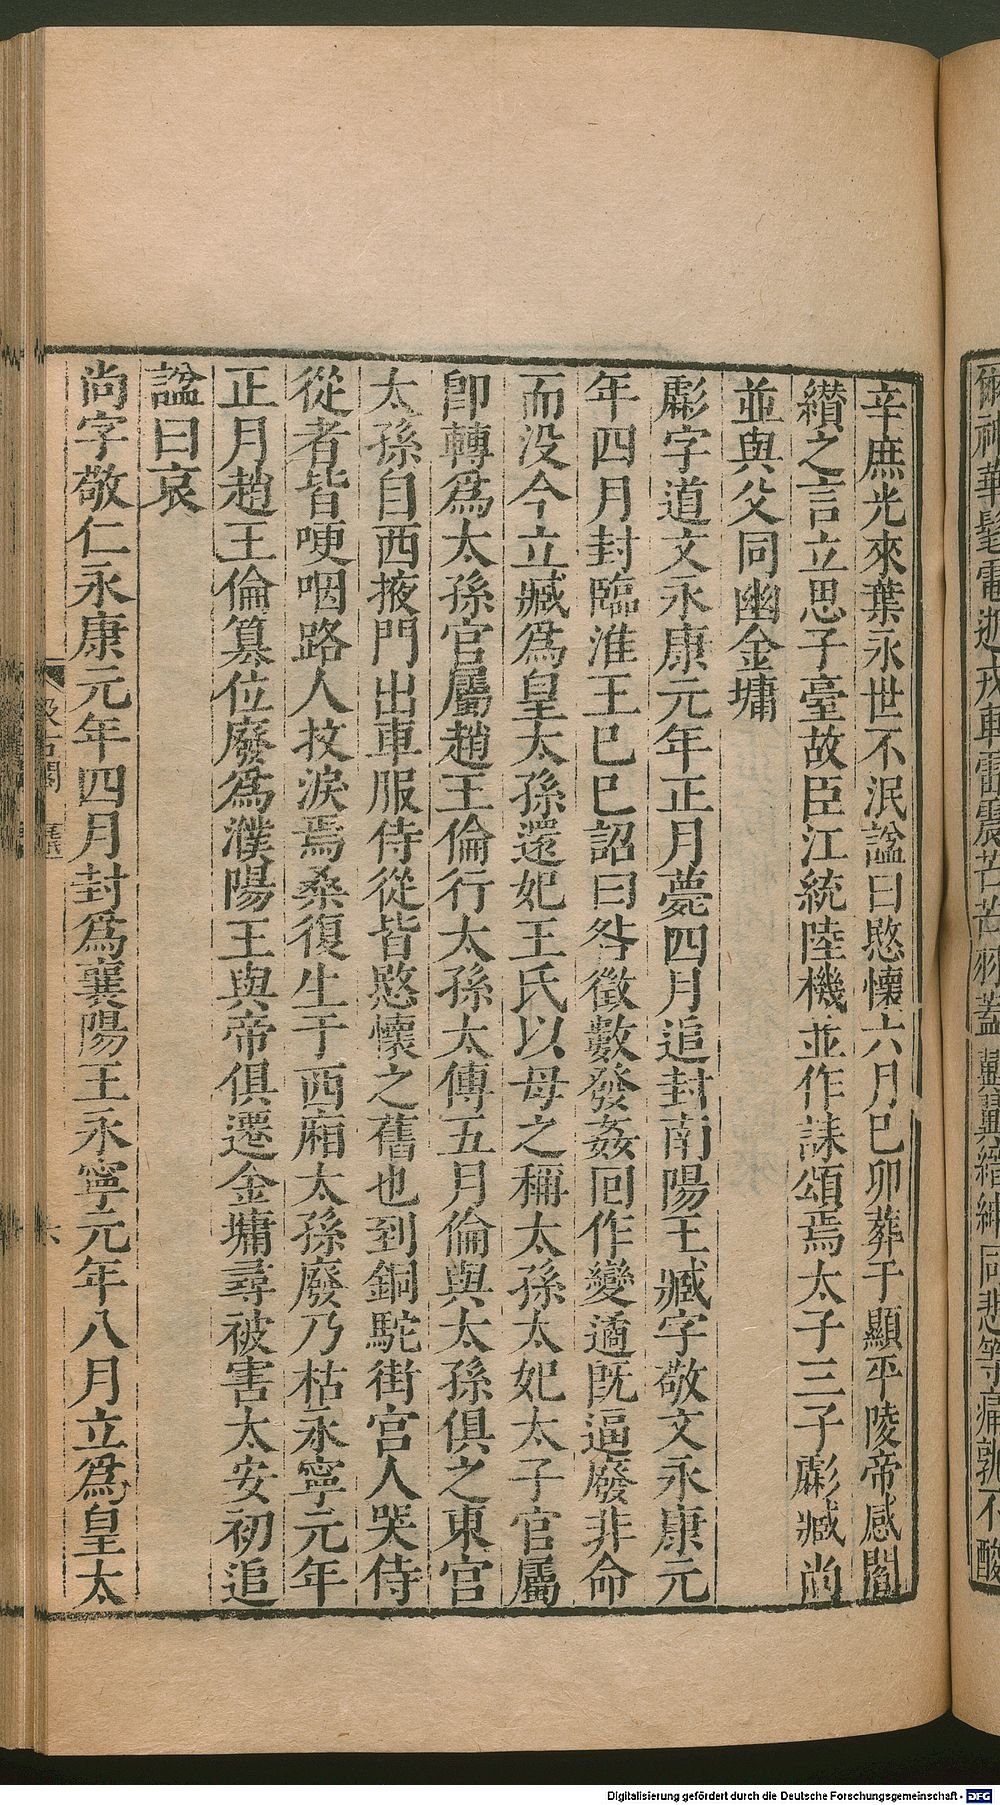 辛庶光來葉永世不泯諡曰愍懷六月巳卯葬于顯平陵帝感閻
纉之言立思子臺故臣江統陸機並作誄頌焉太子三子虨臧尚
並與父同幽金墉
虨字道文永康元年正月薨四月追封南陽王臧字敬文永康元
年四月封臨淮王巳巳詔曰咎徵數發姦回作變遹旣逼廢非命
而没今立臧爲皇太孫還妃王氏以母之稱太孫太妃太子官屬
卽轉爲太孫官屬趙王倫行太孫太傅五月倫與太孫俱之東宫
太孫自西掖門出車服侍從皆愍懷之舊也到銅駝街宫人哭侍
從者皆哽咽路人抆淚焉桑復生于西廂太孫廢乃枯永寧元年
正月趙王倫篡位廢爲濮陽王與帝俱遷金墉尋被害太安初追
諡曰哀
尚字敬仁永康元年四月封爲襄陽王永寧元年八月立爲皇太
Digitalisierung gefördert durch die Deutsche Forschungsgemeinschaft - DFG